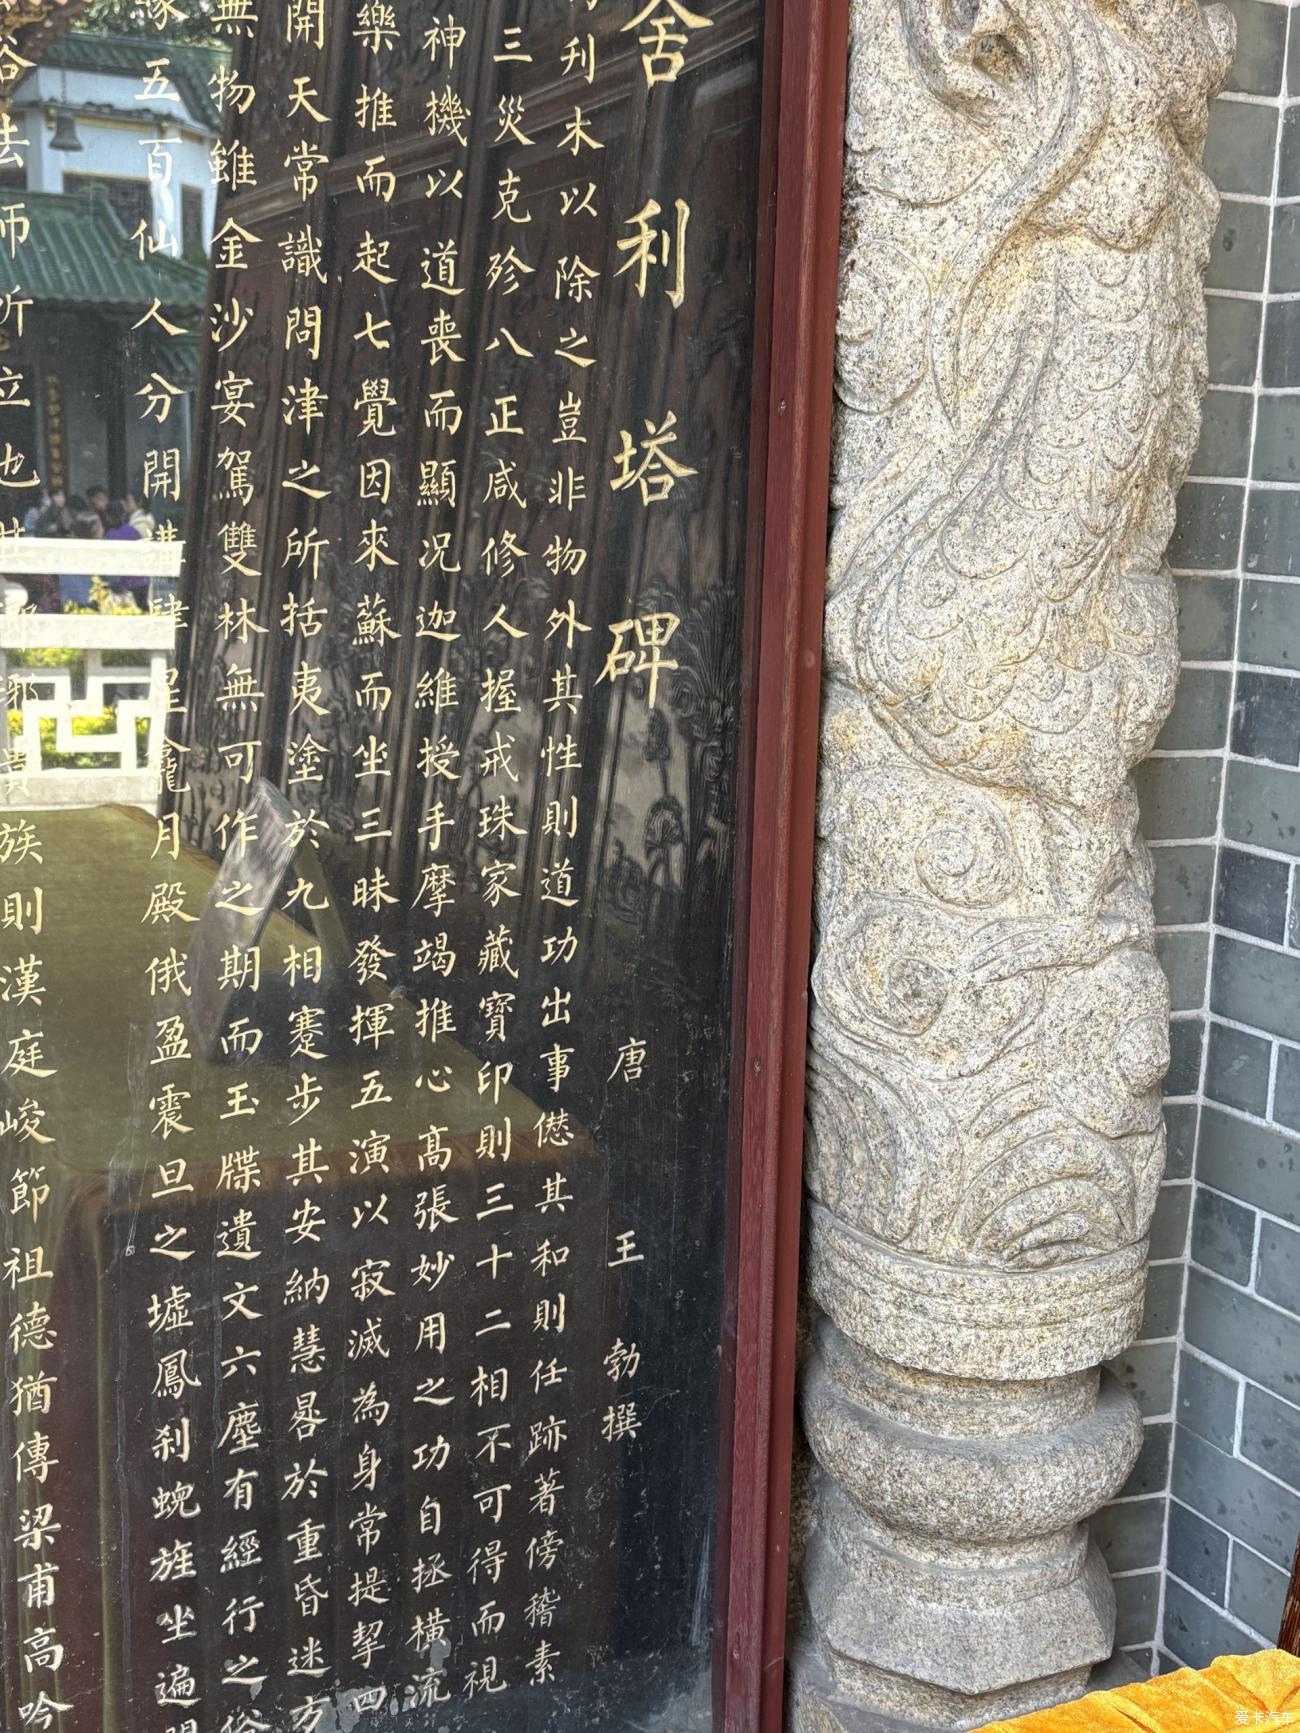 舍利塔碑
唐王勃撰
刋木以除之豈非物外其性則道功出事僁其和則任跡著傍稽素
三災克殄八正咸修人握戒珠家藏寳印則三十二相不可得而視
神機以道喪而顯况迦維授手摩竭推心高張妙用之功自拯橫流
樂推而起七覺因來蘇而坐三昧發揮五演以寂滅為身常提挈四
開天常識問津之所括夷塗於九相蹇步其安納慧晷於重昏迷方
無物雖金沙宴駕雙林無可作之期而玉牒遺文六塵有經行之俗
緣五百仙人分開講肆星龕月殿俄盈震旦之墟鳳刹蜺旌坐遍
法師所立也其瑯琊貴族則漢庭峻節祖德猶傳梁甫高吟
爱卡汽车